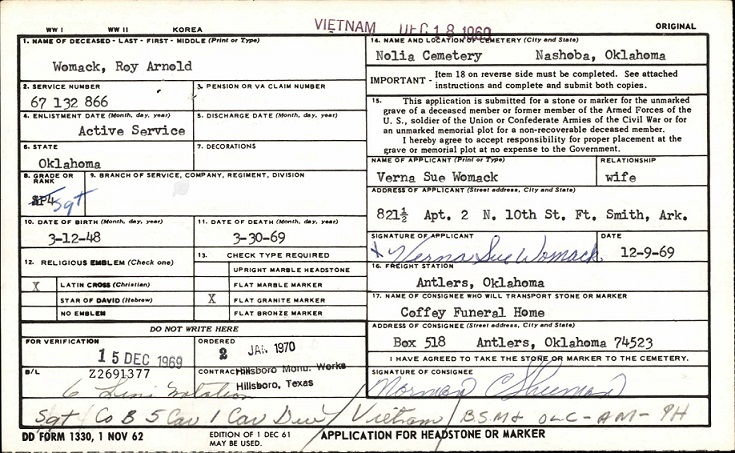 WW I WW II KOREA VIETNAM DEC 18 1969 ORIGINAL
1. NAME OF DECEASED - LAST - FIRST - MIDDLE (Print or Type)
Womack, Roy Arnold
2. SERVICE NUMBER
67 132 866
3. PENSION OR VA CLAIM NUMBER
4. ENLISTMENT DATE (Month, day, year)
Active Service
5. DISCHARGE DATE (Month, day, year)
6. STATE
Oklahoma
7. DECORATIONS
8. GRADE OR RANK
Sgt
9. BRANCH OF SERVICE, COMPANY, REGIMENT, DIVISION
10. DATE OF BIRTH (Month, day, year)
3-12-48
11. DATE OF DEATH (Month, day, year)
3-30-69
12. RELIGIOUS EMBLEM (Check one)
X LATIN CROSS (Christian)
STAR OF DAVID (Hebrew)
NO EMBLEM
13. CHECK TYPE REQUIRED
UPRIGHT MARBLE HEADSTONE
FLAT MARBLE MARKER
X FLAT GRANITE MARKER
FLAT BRONZE MARKER
DO NOT WRITE HERE
FOR VERIFICATION
15 DEC 1969
ORDERED
2 JAN 1970
B/L
Z2691377
CONTRACT
Hillsboro Monu. Works
Hillsboro, Texas
14. NAME AND LOCATION OF CEMETERY (City and State)
Nolia Cemetery Nashoba, Oklahoma
IMPORTANT - Item 18 on reverse side must be completed. See attached
instructions and complete and submit both copies.
15. This application is submitted for a stone or marker for the unmarked
grave of a deceased member or former member of the Armed Forces of the
U. S., soldier of the Union or Confederate Armies of the Civil War or for
an unmarked memorial plot for a non-recoverable deceased member.
I hereby agree to accept responsibility for proper placement at the
grave or memorial plot at no expense to the Government.
NAME OF APPLICANT (Print or Type)
Verna Sue Womack
RELATIONSHIP
wife
ADDRESS OF APPLICANT (Street address, City and State)
821½ Apt. 2 N. 10th St. Ft. Smith, Ark.
SIGNATURE OF APPLICANT
x Verna Sue Womack
DATE
12-9-69
16. FREIGHT STATION
Antlers, Oklahoma
17. NAME OF CONSIGNEE WHO WILL TRANSPORT STONE OR MARKER
Coffey Funeral Home
ADDRESS OF CONSIGNEE (Street address, City and State)
Box 518 Antlers, Oklahoma 74523
I HAVE AGREED TO TAKE THE STONE OR MARKER TO THE CEMETERY.
SIGNATURE OF CONSIGNEE
Sgt Co B 5 Cav 1 Cav Div / Vietnam / BSM & OLC - AM - PH
DD FORM 1330, 1 NOV 62
EDITION OF 1 DEC 61
MAY BE USED.
APPLICATION FOR HEADSTONE OR MARKER